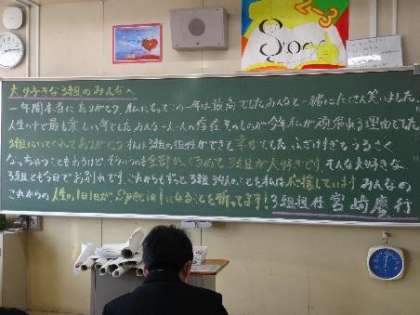 大好きな3組のみんなへ
一年間本当にありがとう。私にとってこの一年は最高でした。みんなと一緒にたくさん笑いました。
人生の中で最も楽しい年でした。みんな一人一人の存在そのものが今年私が頑張れる理由でした。
3組にいてくれてありがとう。そんな3組の担任ができて幸せでした。ふざけすぎてうるさく
なっちゃうこともあるけどそういうのも全部ひっくるめて3組が大好きです。そんな大好きな
3組とも今日でお別れです。これからもずっと3組 39人のことを私は応援しています。みんなの
これからの人生の1日1日が、Specialな1日になることを祈ってます! 3組担任 宮崎
2-3